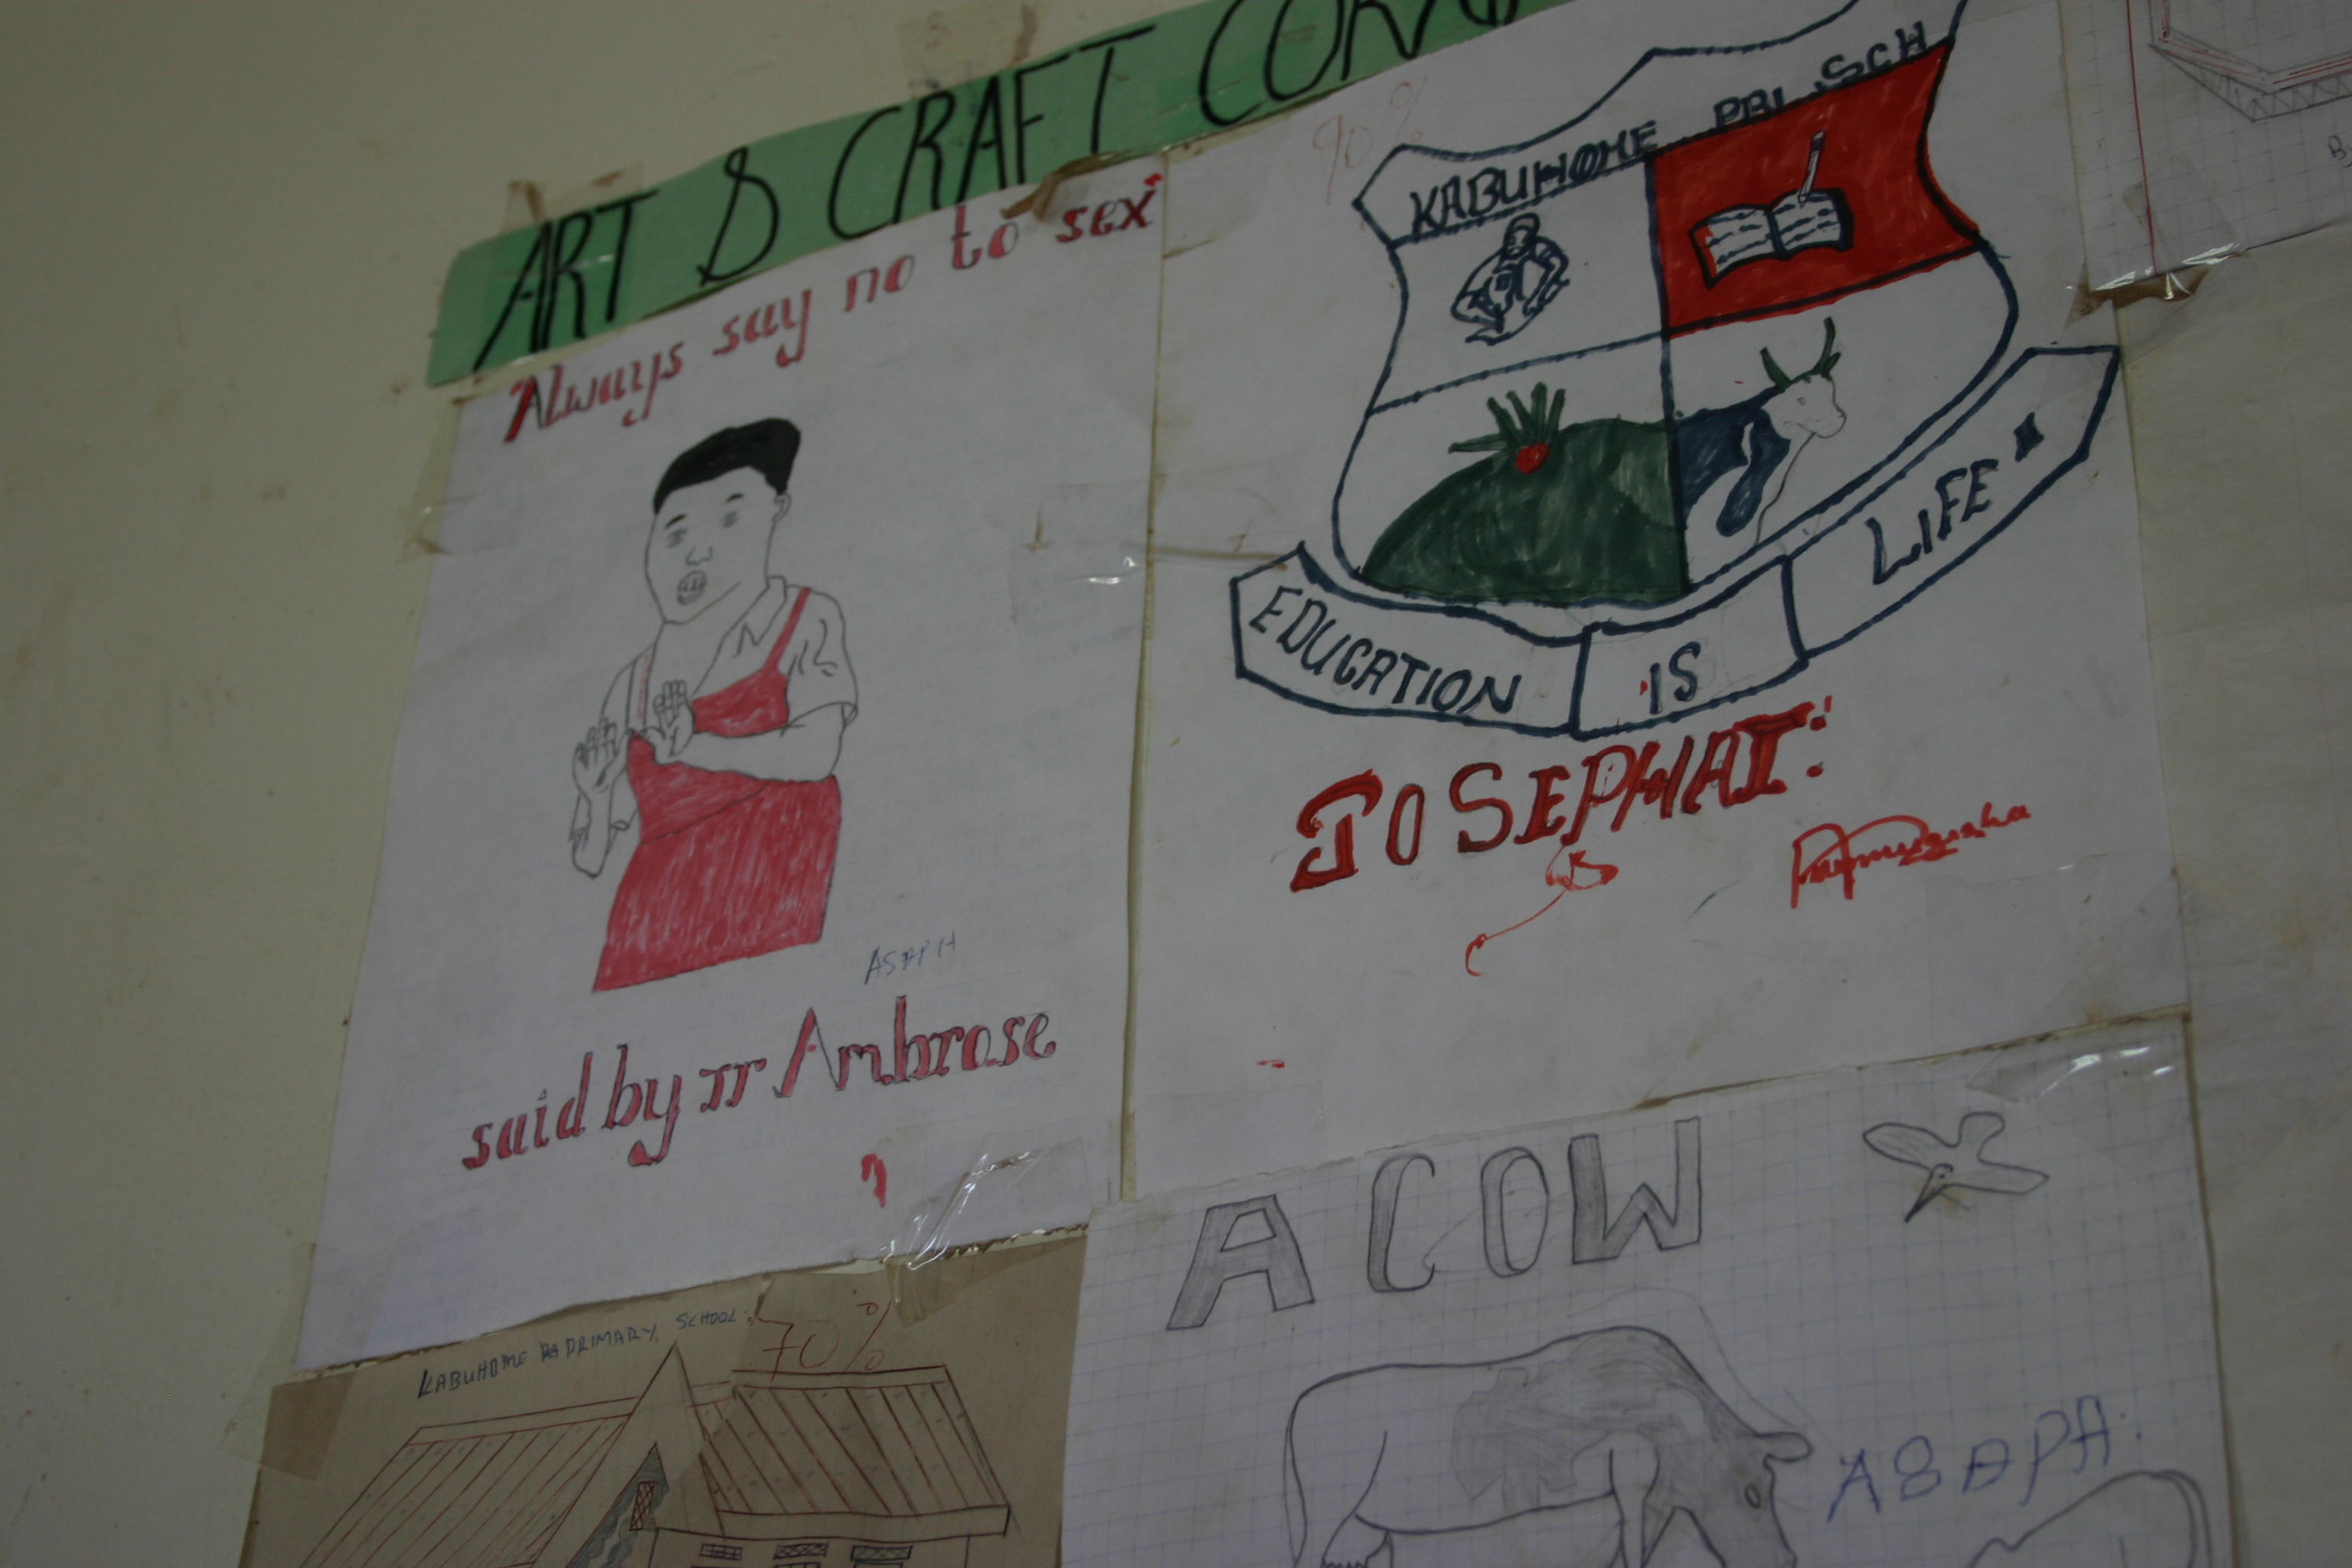 ART & CRAFT CORN
"Always say no to sex"
ASAPH
said by Tr Ambrose
90%
KABUHOME PRI. SCH
EDUCATION IS LIFE
JOSEPHAT:
KABUHOME PRIMARY SCHOOL:
70%
A COW
ASAPH: